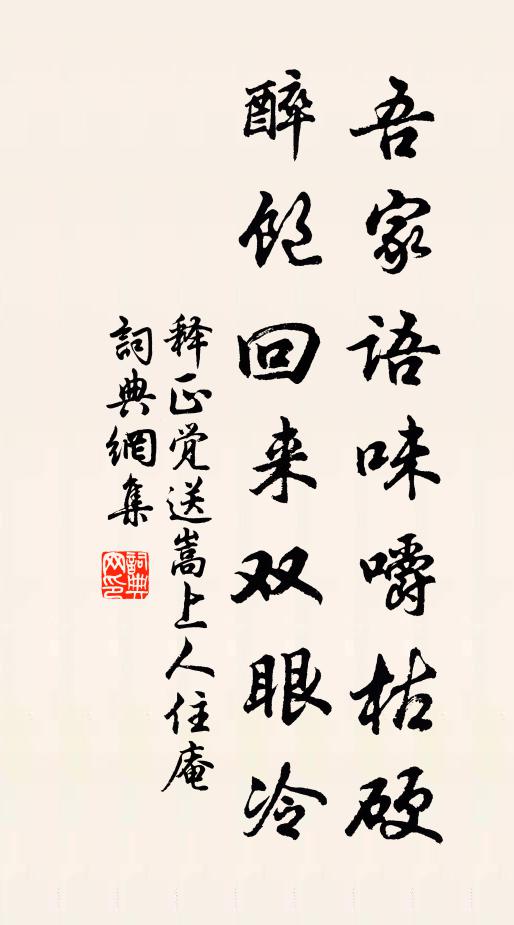 吾家语味嚼枯硬
醉饱回来双眼冷
释正觉送嵩上人住庵
詞典網集
詞典
网印